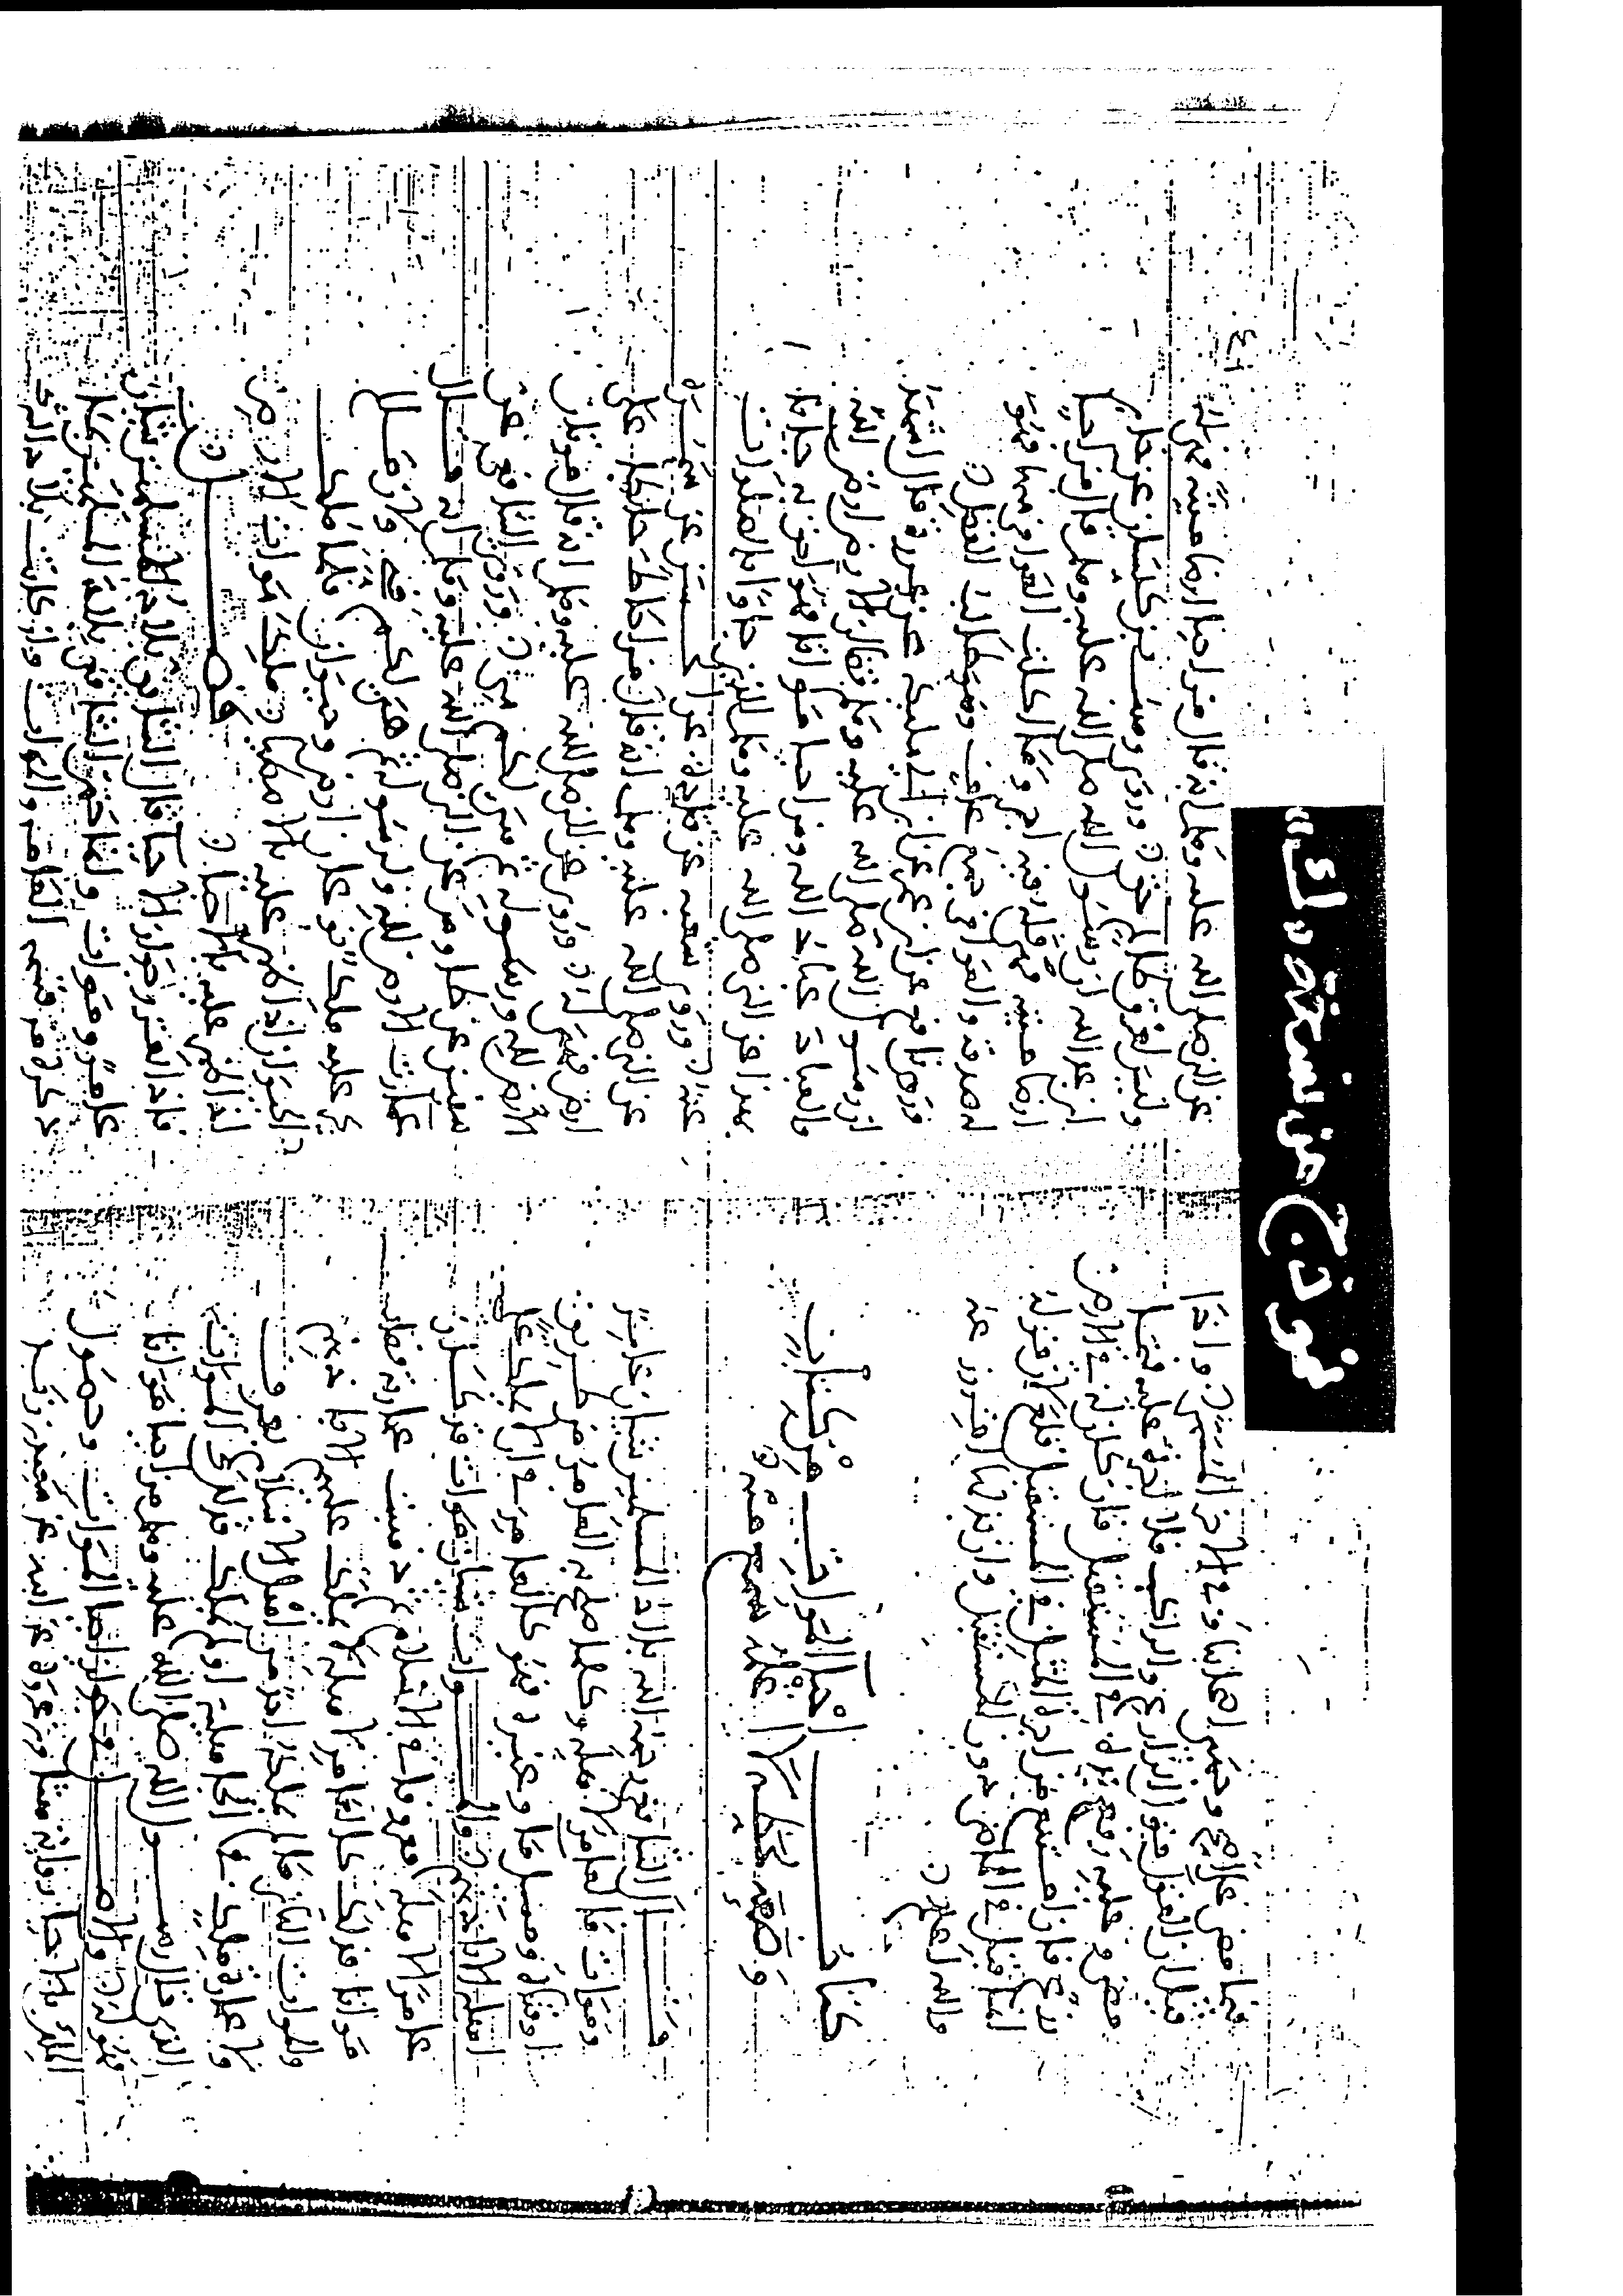 نموذج من نسخة «ك»
قيل ان القول قول الزارع والراكب فلا اجرة عليه فيما
مضى وعليه رفع يده في المستقبل فان كان له في الارض
زرع فان امتنع من اجرة المثل في المستقبل قلع لان قوله
انما قبل في الماضي دون المستقبل وان بذلها اقر زرعه
والله اعلم
كتاب احيا الموات من كتاب
وضعه بخطه لا اعلمه سمع منه
قال الشافعي رحمه الله بلاد المسلمين شيان عامر
وموات فالعامر لاهله وكلما صلح به العامر من طريق
وفناء ومسيل ماء وغيره فهو كالعامر في ان لا يملك على
اهله الا باذنهم والموات شيان موات قد كان
عامرا لاهله معروفا في الاسلام ثم ذهبت عمارته فصار
مواتا فذلك كالعامر لاهله لا يملك عليهم الا باذنهم
والموات الثاني ما لم يملكه احد في الاسلام يعرف
ولا عمارة ملك في الجاهلية او لم يملك فذلك الموات
الذي قال رسول الله صلى الله عليه وسلم من احيا مواتا
فهو له والاصل في جواز احيا الموات وحصول
الملك بالاحيا رواية هشام بن عروة عن ابيه عن سعيد بن زيد
عن النبي صلى الله عليه وسلم انه قال من احيا ارضا ميتة فهي له
وليس لعرق ظالم حق وروى وهب بن كيسان عن جابر
ابن عبد الله ان رسول الله صلى الله عليه وسلم قال من احيا
ارضا ميتة فله فيها اجر وما اكلت العوافي منها فهو
له صدقة والعوافي جمع عاف وهو طالب الفضل
ابن ابي مليكة عن عروة قال اشهد
ان رسول الله صلى الله عليه وسلم قضى ان الارض ارض الله
والعباد عباد الله ومن احيا مواتا فهو احق به جانا
بهذا عن النبي صلى الله عليه وسلم الذين جاوا بالصلوات
عنه وروى شعبة عن قتادة عن الحسن عن سمرة
عن النبي صلى الله عليه وسلم انه قال من احاط حايطا على
ارض فهي له وروي عن النبي صلى الله عليه وسلم انه قال موتان
الارض لله ورسوله ثم هي لكم مني وروى الشافعي عن
سفين عن طاوس عن النبي صلى الله عليه وسلم انه قال
عادي الارض لله ولرسوله ثم هي لكم مني ولان ما
لم يجر عليه ملك نوعان ارض وحيوان فلما ملك
الحيوان اذا ظهر عليه ملك موات الارض
اذا ظهر عليه بالاحيا
فصل
فاذا تقرر جواز الاحيا قال الشافعي بلاد المسلمين شيان
عامر وموات وانما خص الشافعي بلاد المسلمين
ذكره من قسمة العامر والموات وان كانت بلاد